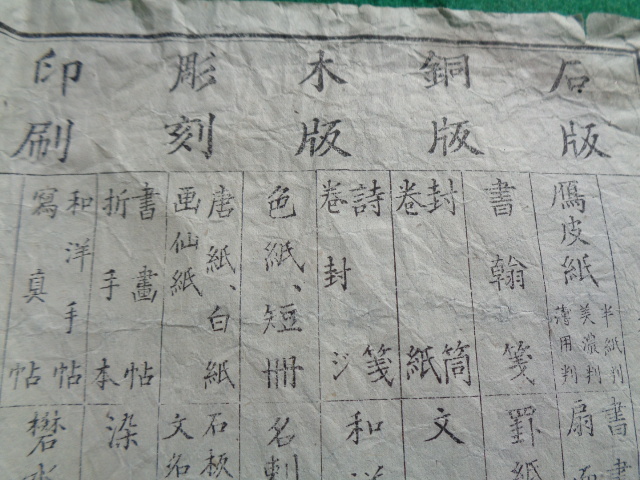 石版
銅版
木版
彫刻
印刷
鴈皮紙
半紙判
美濃判
薄用判
書翰箋
封筒
巻紙
詩箋
巻封じ
色紙、短冊
唐紙、白紙
画仙紙
書畫帖
折手本
和洋手帖
寫真帖
書
扇
罫紙
文
和
名刺
石板
文名
染
礬水